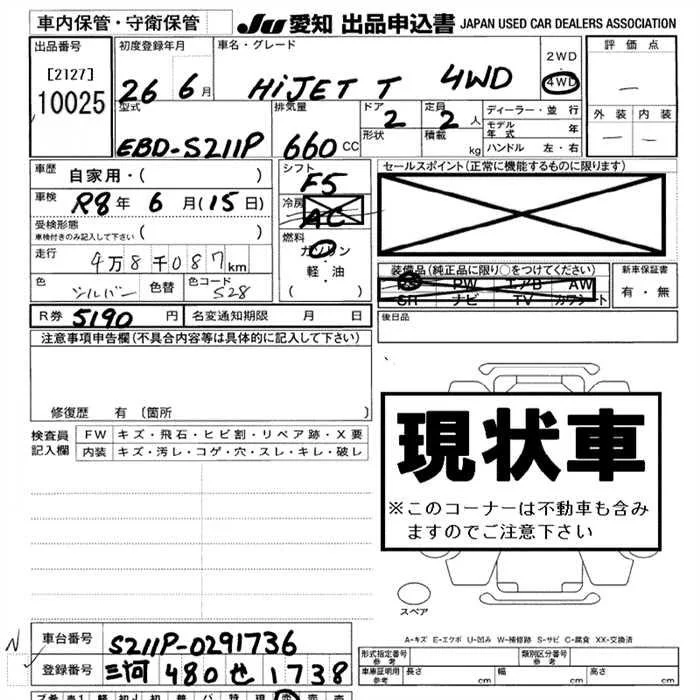 車内保管・守衛保管
JU 愛知 出品申込書 JAPAN USED CAR DEALERS ASSOCIATION
出品番号
[2127]
10025
初度登録年月
26 6月
車名・グレード
HiJET T 4WD
2WD
4WD
評価点
—
外装 内装
— —
型式
EBD-S211P
排気量
660 CC
ドア
2
定員
2 人
形状
積載 kg
ディーラー・並行
モデル年式 年
ハンドル 左・右
車歴 自家用・( )
車検 R8年 6月(15日)
受検形態
車検付きのみ記入して下さい ( )
走行 4万8千087km
色 シルバー 色替 色コード S28
シフト
F5
冷房
AC
燃料
ガソリン
軽・油
( )
セールスポイント(正常に機能するものに限ります)
装備品(純正品に限り○をつけてください)
PS PW エアB AW
SR ナビ TV カワシート
新車保証書
有・無
R券 5190 円 名変通知期限 月 日
後日品
注意事項申告欄(不具合内容等は具体的に記入して下さい)
修復歴 有 〔箇所 〕
検査員記入欄
FW キズ・飛石・ヒビ割・リペア跡・X要
内装 キズ・汚レ・コゲ・穴・スレ・キレ・破レ
現状車
※このコーナーは不動車も含み
ますのでご注意下さい
スペア
A-キズ E-エクボ U-凹み W-補修跡 S-サビ C-腐食 XX-交換済
N
車台番号 S211P-0291736
登録番号 三河 480 せ 1738
形式指定番号
参考
類別区分番号
参考
車庫証明用
参考
長さ 幅 高さ
cm cm cm